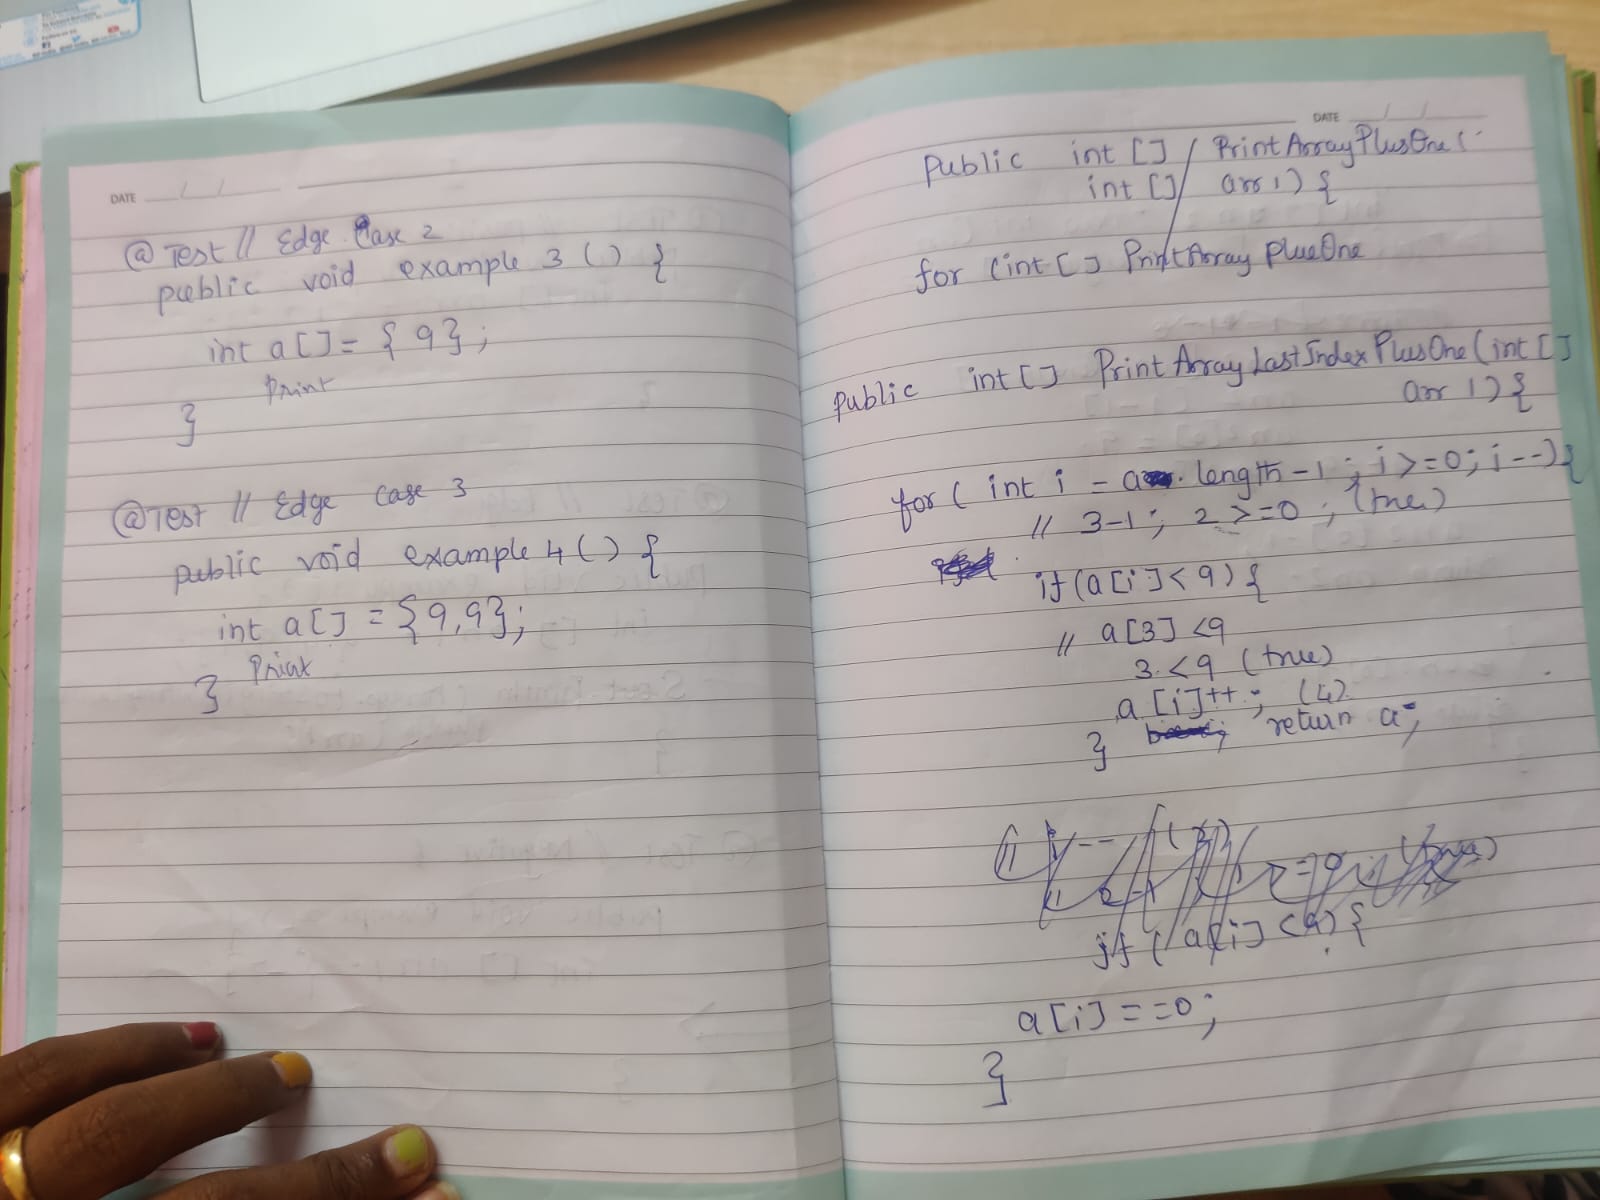 DATE
@Test // Edge Case 2
public void example 3 () {
int a[] = { 9};
Print
}
@Test // Edge Case 3
public void example 4 () {
int a[] = {9,9};
Print
}
DATE
Public int [] PrintArrayPlusOne (
int [] arr 1) {
for (int [] PrintArray PlusOne
public int [] PrintArrayLastIndexPlusOne (int []
arr 1) {
for ( int i = a. length -1 ; i >=0; i--){
// 3-1 ; 2 >=0 ; (true)
if (a[i] < 9) {
// a[3] <9
3 <9 (true)
a [i]++ ; (4)
} return a;
if ( a[i] <9) {
a[i] ==0;
}